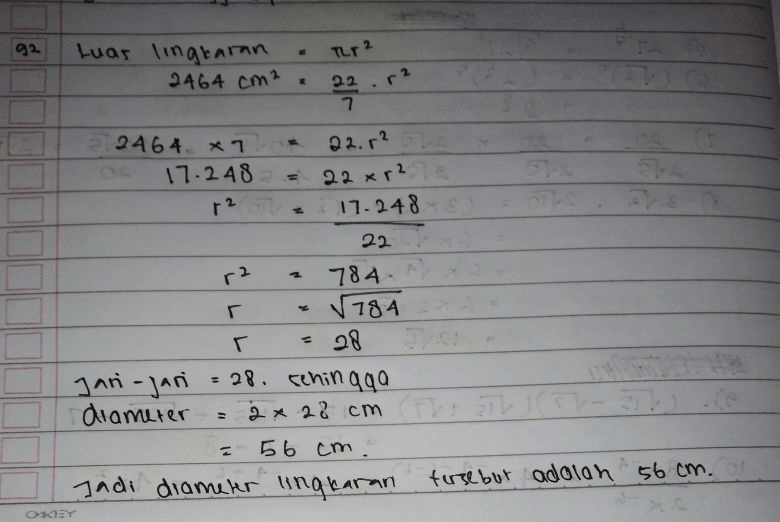 92 Luas lingkaran = πr²
2464 cm² = 22/7 . r²
2464 x 7 = 22.r²
17.248 = 22 x r²
r² = 17.248/22
r² = 784
r = √784
r = 28
Jari-jari = 28. sehingga
diameter = 2 x 28 cm
= 56 cm.
Jadi diameter lingkaran tersebut adalah 56 cm.